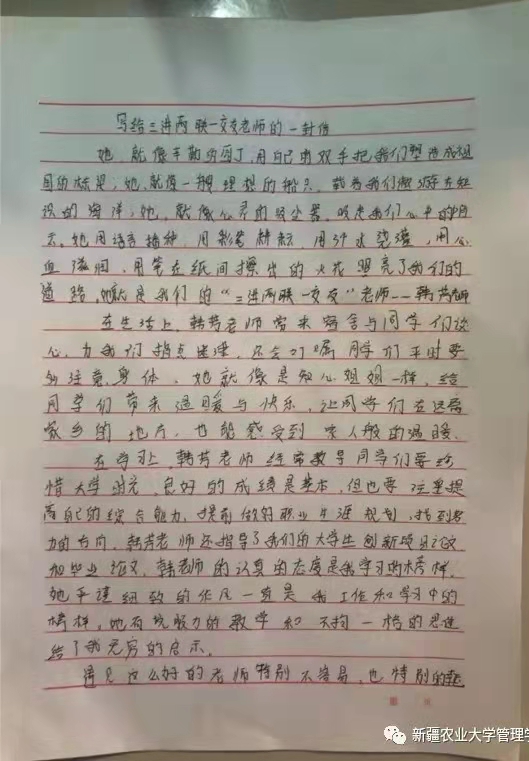 写给三进两联一交友老师的一封信
她,就像辛勤的园丁,用自己的双手把我们塑造成祖
国的栋梁;她,就像一艘理想的船只,载着我们遨游在知
识的海洋;她,就像心灵的吸尘器,吸走我们心中的
云。她用语言播种,用彩笔耕耘,用汗水浇灌,用心
血滋润,用笔在纸间擦出的火花照亮了我们的
道路。她就是我们的“三进两联一交友”老师——韩芳老师
在生活上,韩芳老师常来宿舍与同学们谈
心,为我们指点迷津,还会叮嘱同学们平时要
多注意身体,她就像是知心姐姐一样,给
同学们带来温暖与快乐,让同学们在远离
家乡的地方,也能感受到家人般的温暖。
在学习上,韩芳老师经常教导同学们要珍
惜大学时光,良好的成绩是基本,但也要注重提
高自己的综合能力,提前做好职业生涯规划,找到努
力的方向,韩芳老师还指导了我们的大学生创新项目论文
和毕业论文,韩老师的认真的态度是我学习的榜样,
她严谨细致的作风一直是我工作和学习中的
榜样,她有说服力的教学和不拘一格的思想
给了我无穷的启示。
遇见这么好的老师特别不容易,也特别的
新疆农业大学管理学